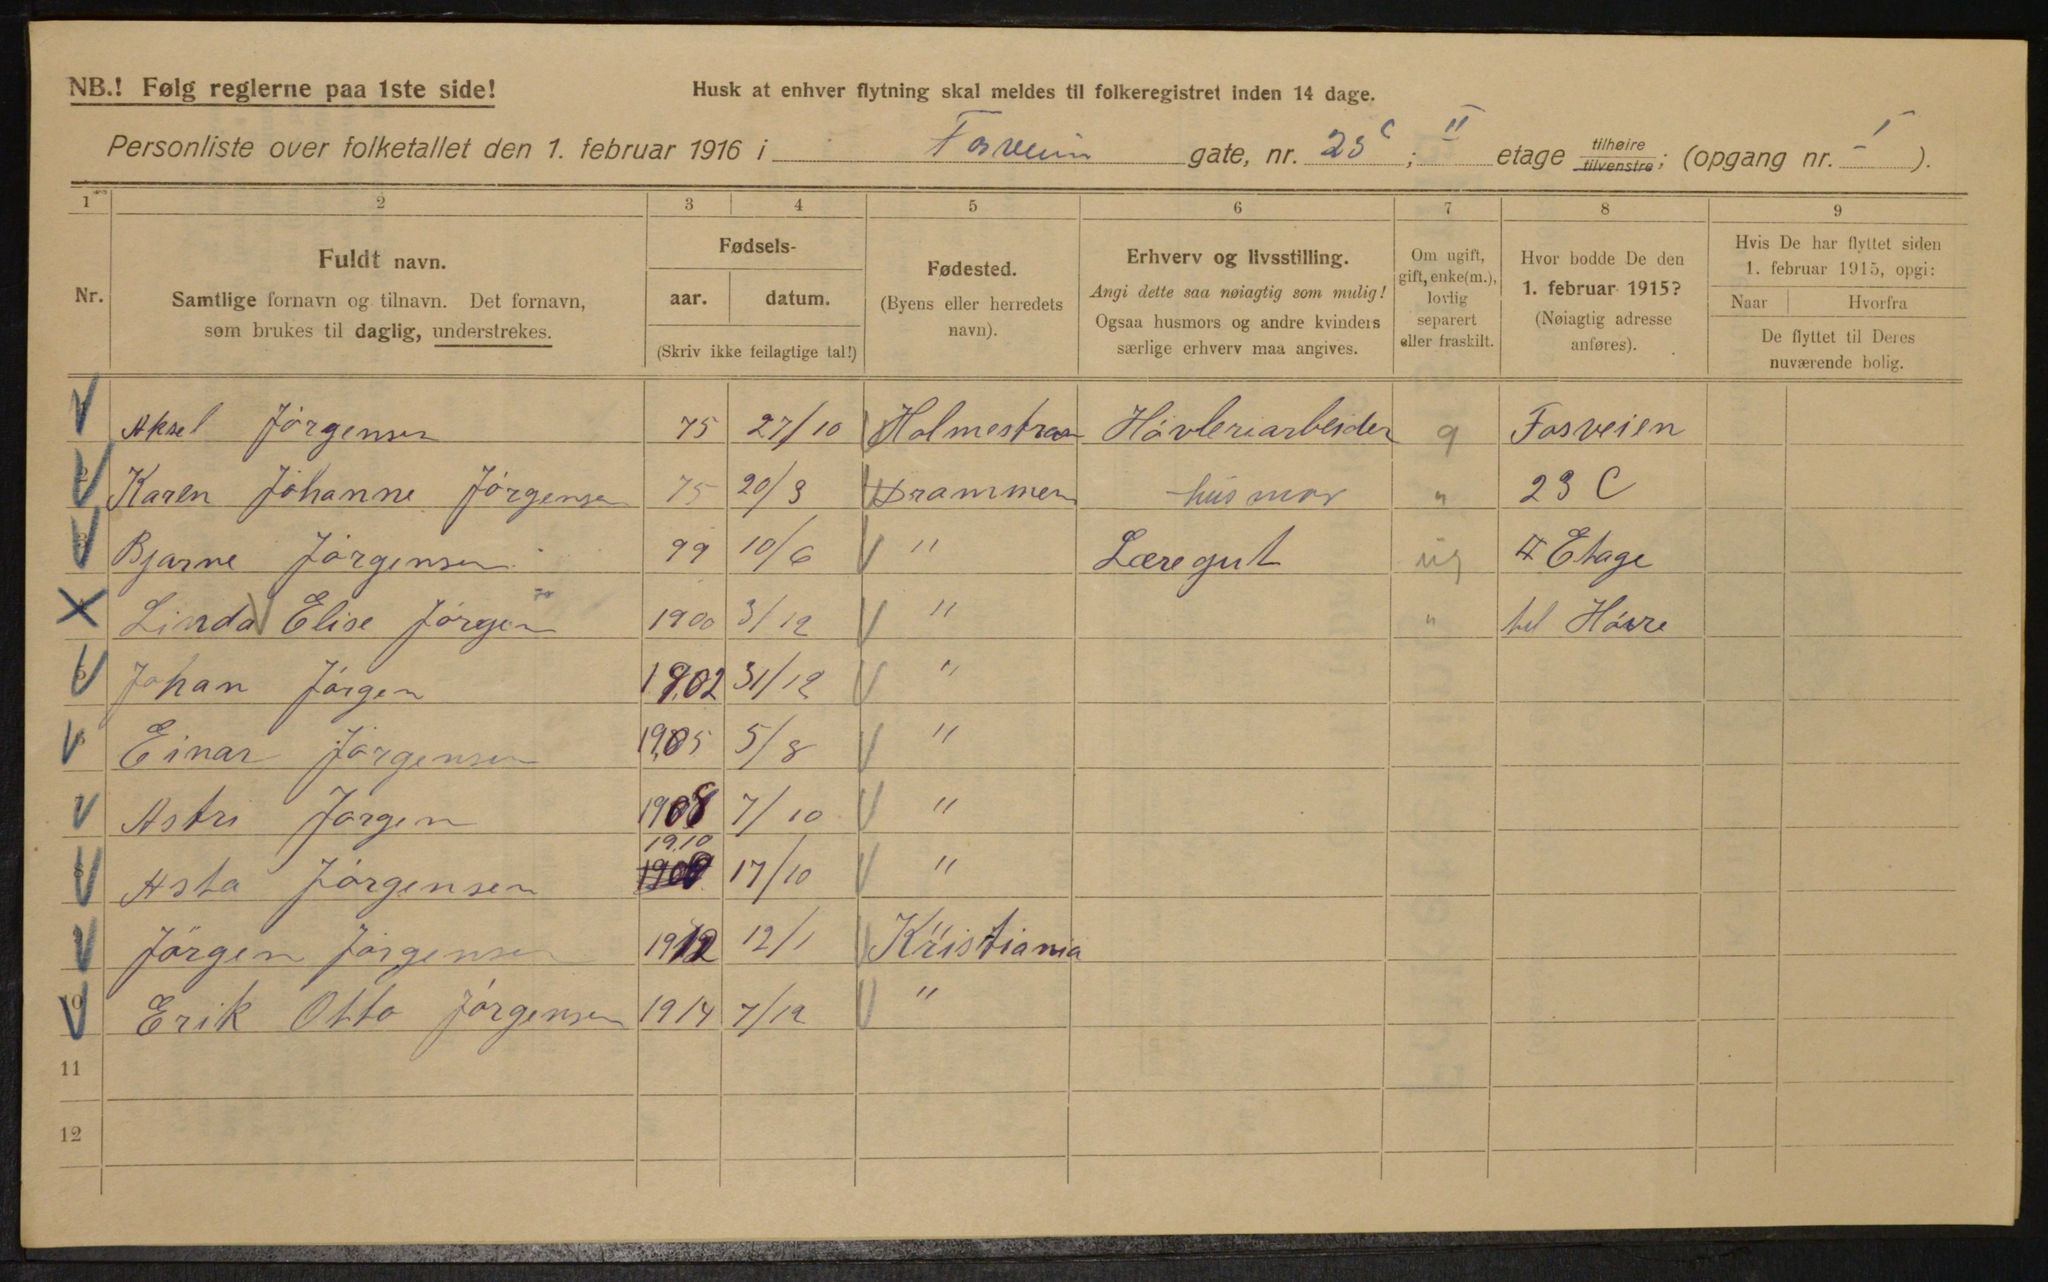 NB.! Følg reglerne paa 1ste side!
Husk at enhver flytning skal meldes til folkeregistret inden 14 dage.
Personliste over folketallet den 1. februar 1916 i Fosveien gate, nr. 23 C; II etage tilhøire tilvenstre; (opgang nr. I).
1 2 3 4 5 6 7 8 9
Nr.
Fuldt navn.
Samtlige fornavn og tilnavn. Det fornavn,
som brukes til daglig, understrekes.
Fødsels-
aar. datum.
(Skriv ikke feilagtige tal!)
Fødested.
(Byens eller herredets
navn).
Erhverv og livsstilling.
Angi dette saa nøiagtig som mulig!
Ogsaa husmors og andre kvinders
særlige erhverv maa angives.
Om ugift,
gift, enke(m.),
lovlig
separert
eller fraskilt.
Hvor bodde De den
1. februar 1915?
(Nøiagtig adresse
anføres).
Hvis De har flyttet siden
1. februar 1915, opgi:
Naar Hvorfra
De flyttet til Deres
nuværende bolig.
Aksel Jörgensen 75 27/10 Holmestran Hövleriarbeider g Fosveien
2 Karen Johanne Jörgensen 75 20/3 Drammen husmor " 23 C
3 Bjarne Jörgensen 99 10/6 " Læregut ug II Etage
Linda Elise Jörgen 1900 3/12 " " tel Höire
5 Johan Jörgen 1902 31/12 "
6 Einar Jörgensen 1905 5/8 "
7 Astri Jörgen 1908 7/10 "
1910
8 Asta Jörgensen 17/10 "
9 Jörgen Jörgensen 1912 12/1 Kristiania
10 Erik Otto Jörgensen 1914 7/12 "
11
12